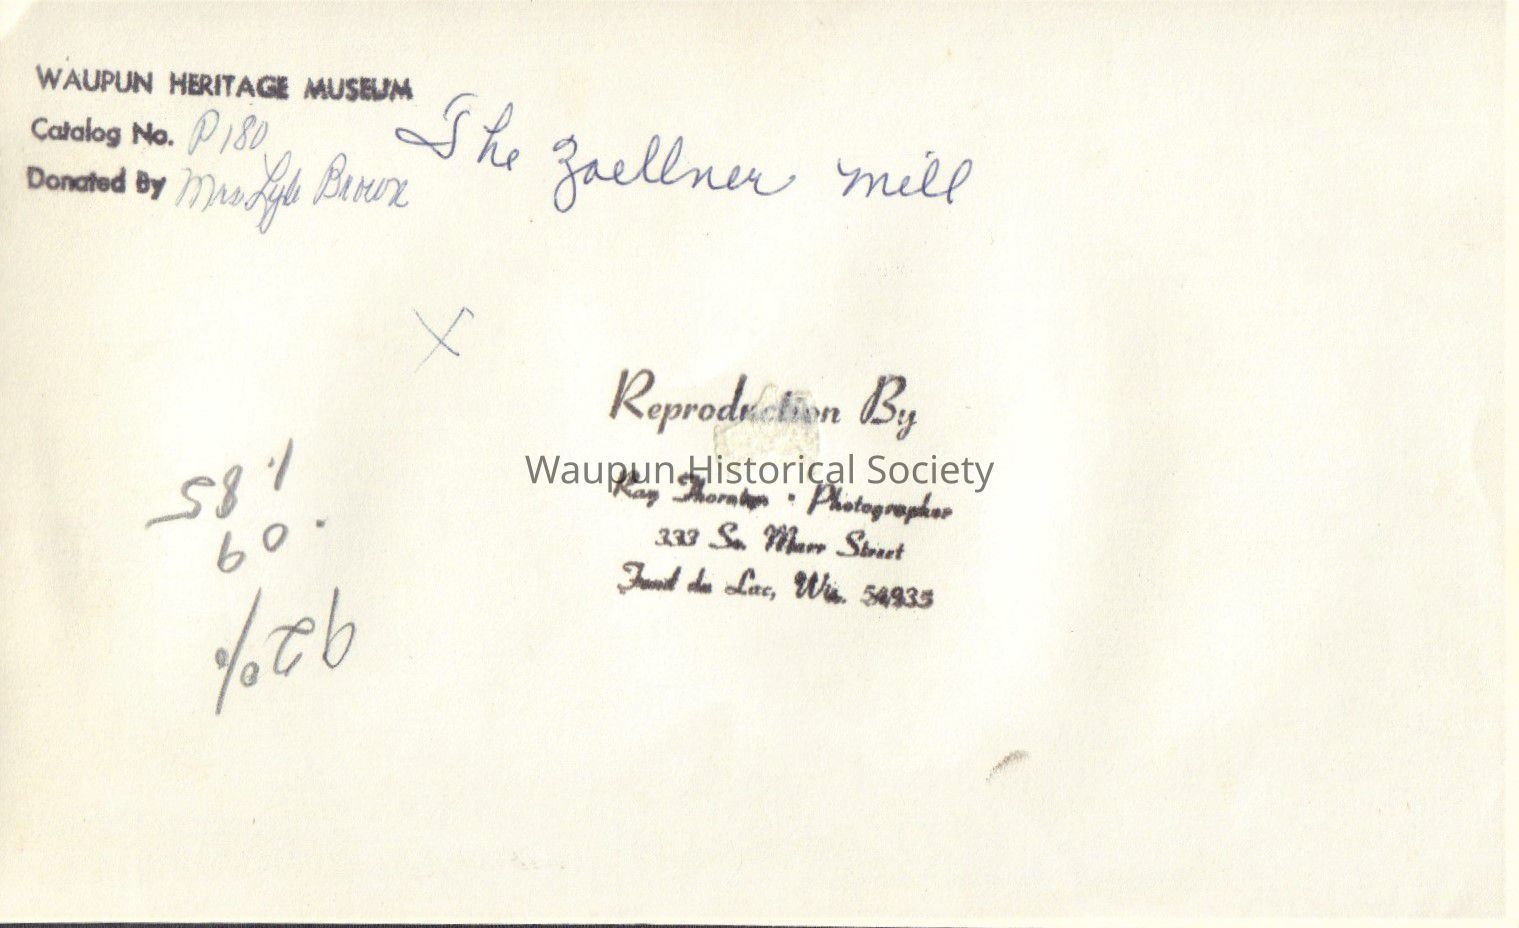 WAUPUN HERITAGE MUSEUM
Catalog No. P180
Donated By Mrs Lyle Brown
The Zoellner Mill
X
Reproduction By
Waupun Historical Society
Ray Thornton · Photographer
333 So. Marr Street
Fond du Lac, Wis. 54935
92%
60.